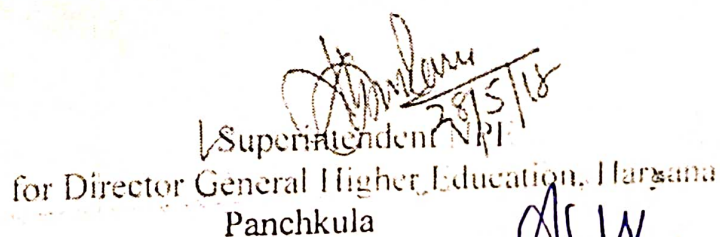 28/5/18
Superintendent NPE
for Director General Higher Education, Haryana
Panchkula